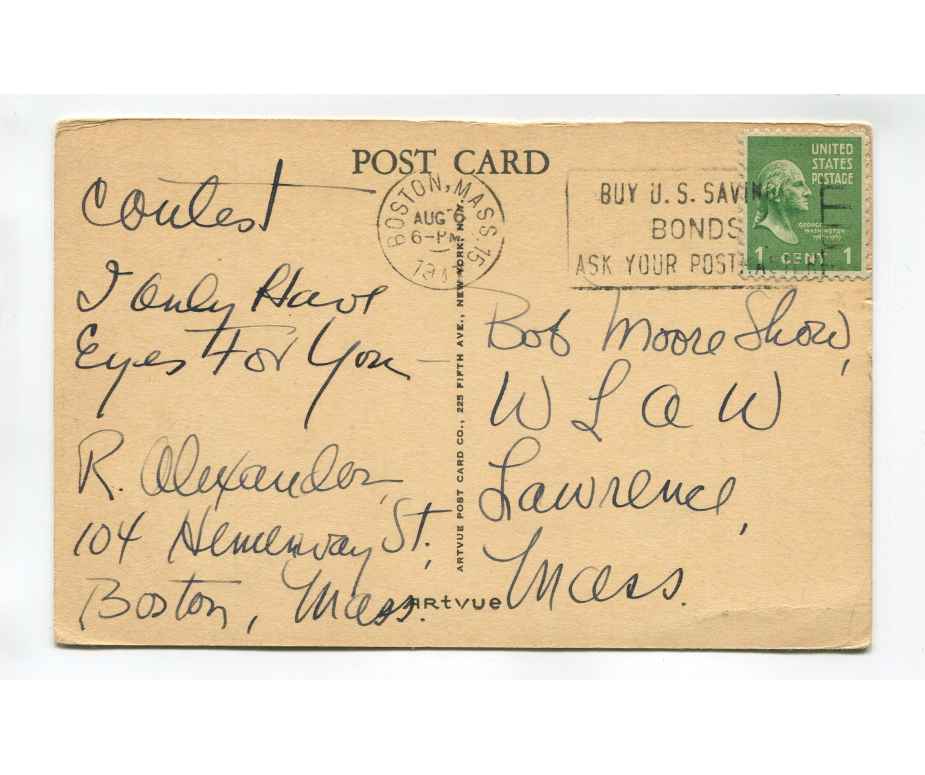 POST CARD
Contest
I Only Have
Eyes For You —
R. Alexander,
104 Hemenway St.,
Boston, Mass.
BOSTON, MASS. 15
AUG 6
6-PM
BUY U.S. SAVINGS
BONDS
ASK YOUR POSTMASTER
UNITED
STATES
POSTAGE
GEORGE
WASHINGTON
1 CENT 1
Bob Moore Show,
W L A W
Lawrence,
Mass.
ARTVUE POST CARD CO., 225 FIFTH AVE., NEW YORK, N.Y.
ARTVUE